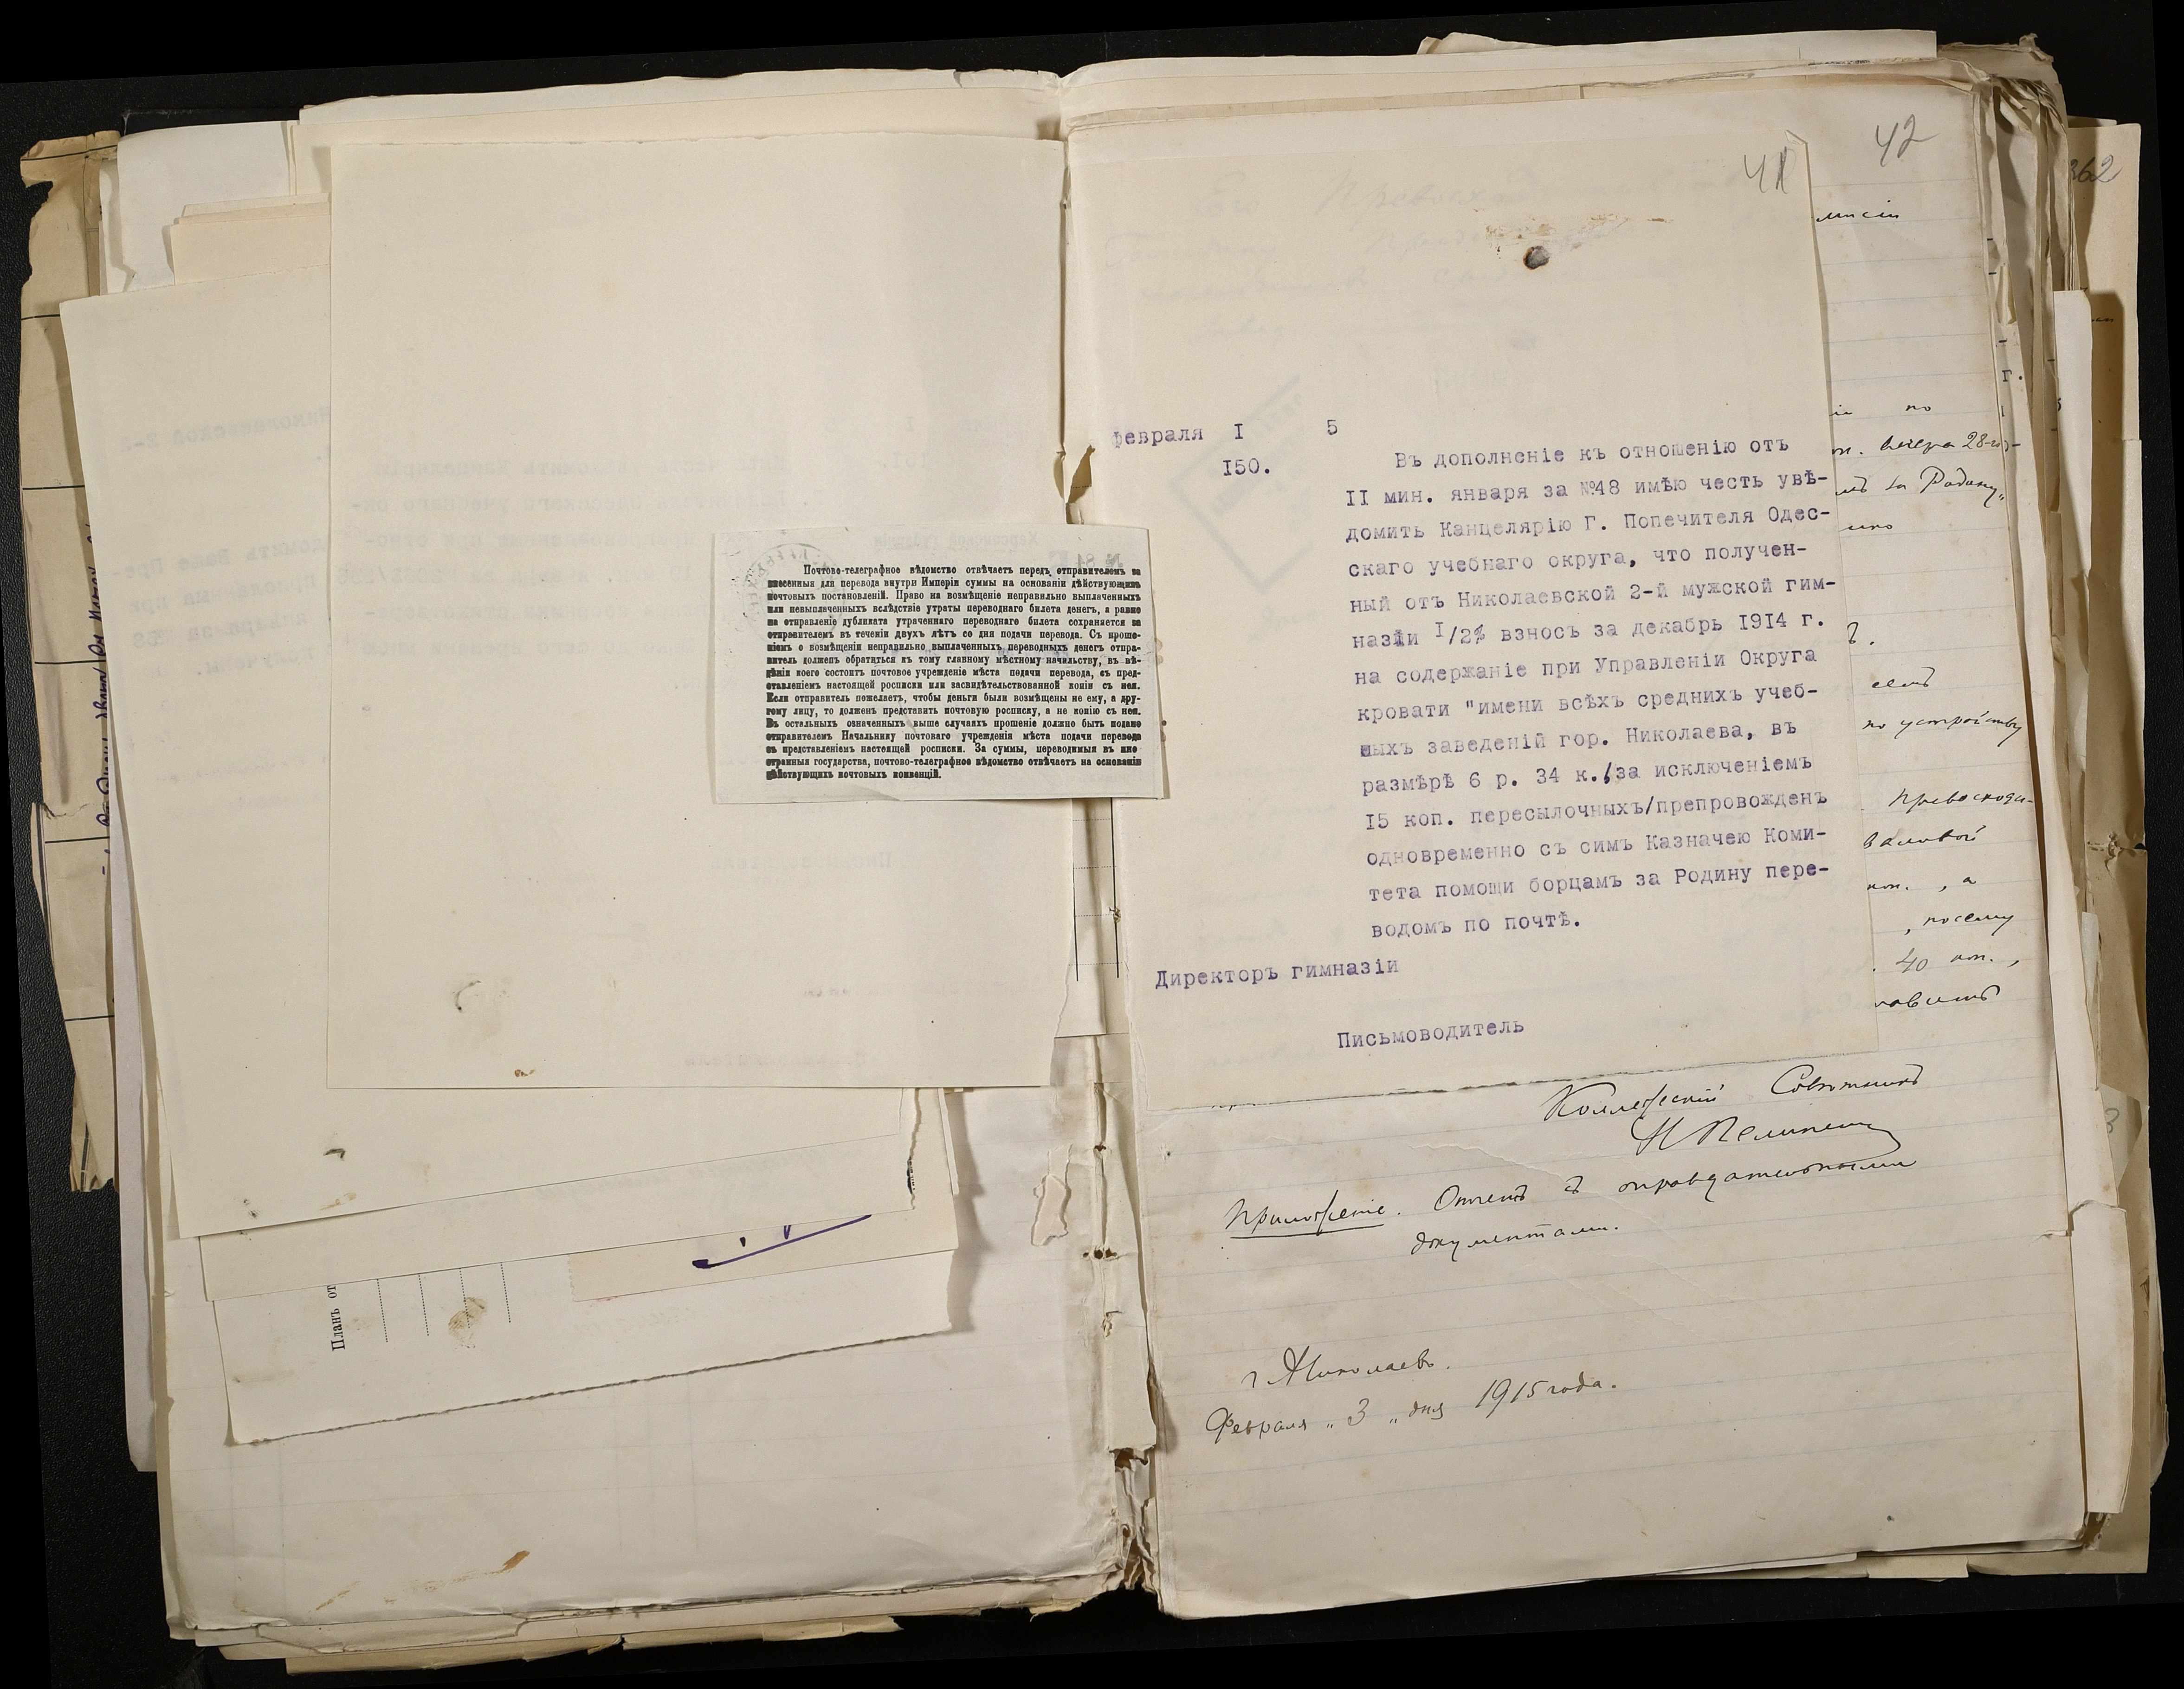 Почтово-телеграфное вѣдомство отвѣчаетъ передъ отправителемъ за
внесенныя для перевода внутри Имперіи суммы на основаніи дѣйствующихъ
почтовыхъ постановленій. Право на возмѣщеніе неправильно выплаченныхъ
или невыплаченныхъ вслѣдствіе утраты переводнаго билета денегъ, а равно
на отправленіе дубликата утраченнаго переводнаго билета сохраняется за
отправителемъ въ теченіи двухъ лѣтъ со дня подачи перевода. Съ проше-
ніемъ о возмѣщеніи неправильно выплаченныхъ переводныхъ денегъ отпра-
витель долженъ обратиться къ тому главному мѣстному начальству, въ вѣ-
дѣніи коего состоитъ почтовое учрежденіе мѣста подачи перевода, съ пред-
ставленіемъ настоящей росписки или засвидѣтельствованной копіи съ нея.
Если отправитель пожелаетъ, чтобы деньги были возмѣщены не ему, а дру-
гому лицу, то долженъ представить почтовую росписку, а не копію съ нея.
Въ остальныхъ означенныхъ выше случаяхъ прошеніе должно быть подано
отправителемъ Начальнику почтоваго учрежденія мѣста подачи перевода
съ представленіемъ настоящей росписки. За суммы, переводимыя въ ино
странныя государства, почтово-телеграфное вѣдомство отвѣчаетъ на основаніи
дѣйствующихъ почтовыхъ конвенцій.
Планъ от
42
41
362
февраля I 5
I50.
Въ дополненіе къ отношенію отъ
II мин. января за №48 имѣю честь увѣ-
домить Канцелярію Г. Попечителя Одес-
скаго учебнаго округа, что получен-
ный отъ Николаевской 2-й мужской гим-
назіи I/2% взносъ за декабрь I9I4 г.
на содержаніе при Управленіи Округа
кровати "имени всѣхъ среднихъ учеб-
ныхъ заведеній гор. Николаева, въ
размѣрѣ 6 р. 34 к./за исключеніемъ
I5 коп. пересылочныхъ/препровожденъ
одновременно съ симъ Казначею Коми-
тета помощи борцамъ за Родину пере-
водомъ по почтѣ.
Директоръ гимназіи
Письмоводитель
по
вечера 28-го
за Родину"
по устройству
Превосходи-
валовой
коп. , а
, посему
40 коп.,
Коллежскій Совѣтникъ
Приложеніе. Отчетъ съ оправдательными
документами.
г. Николаевъ.
Февраля " 3 " дня 1915 года.